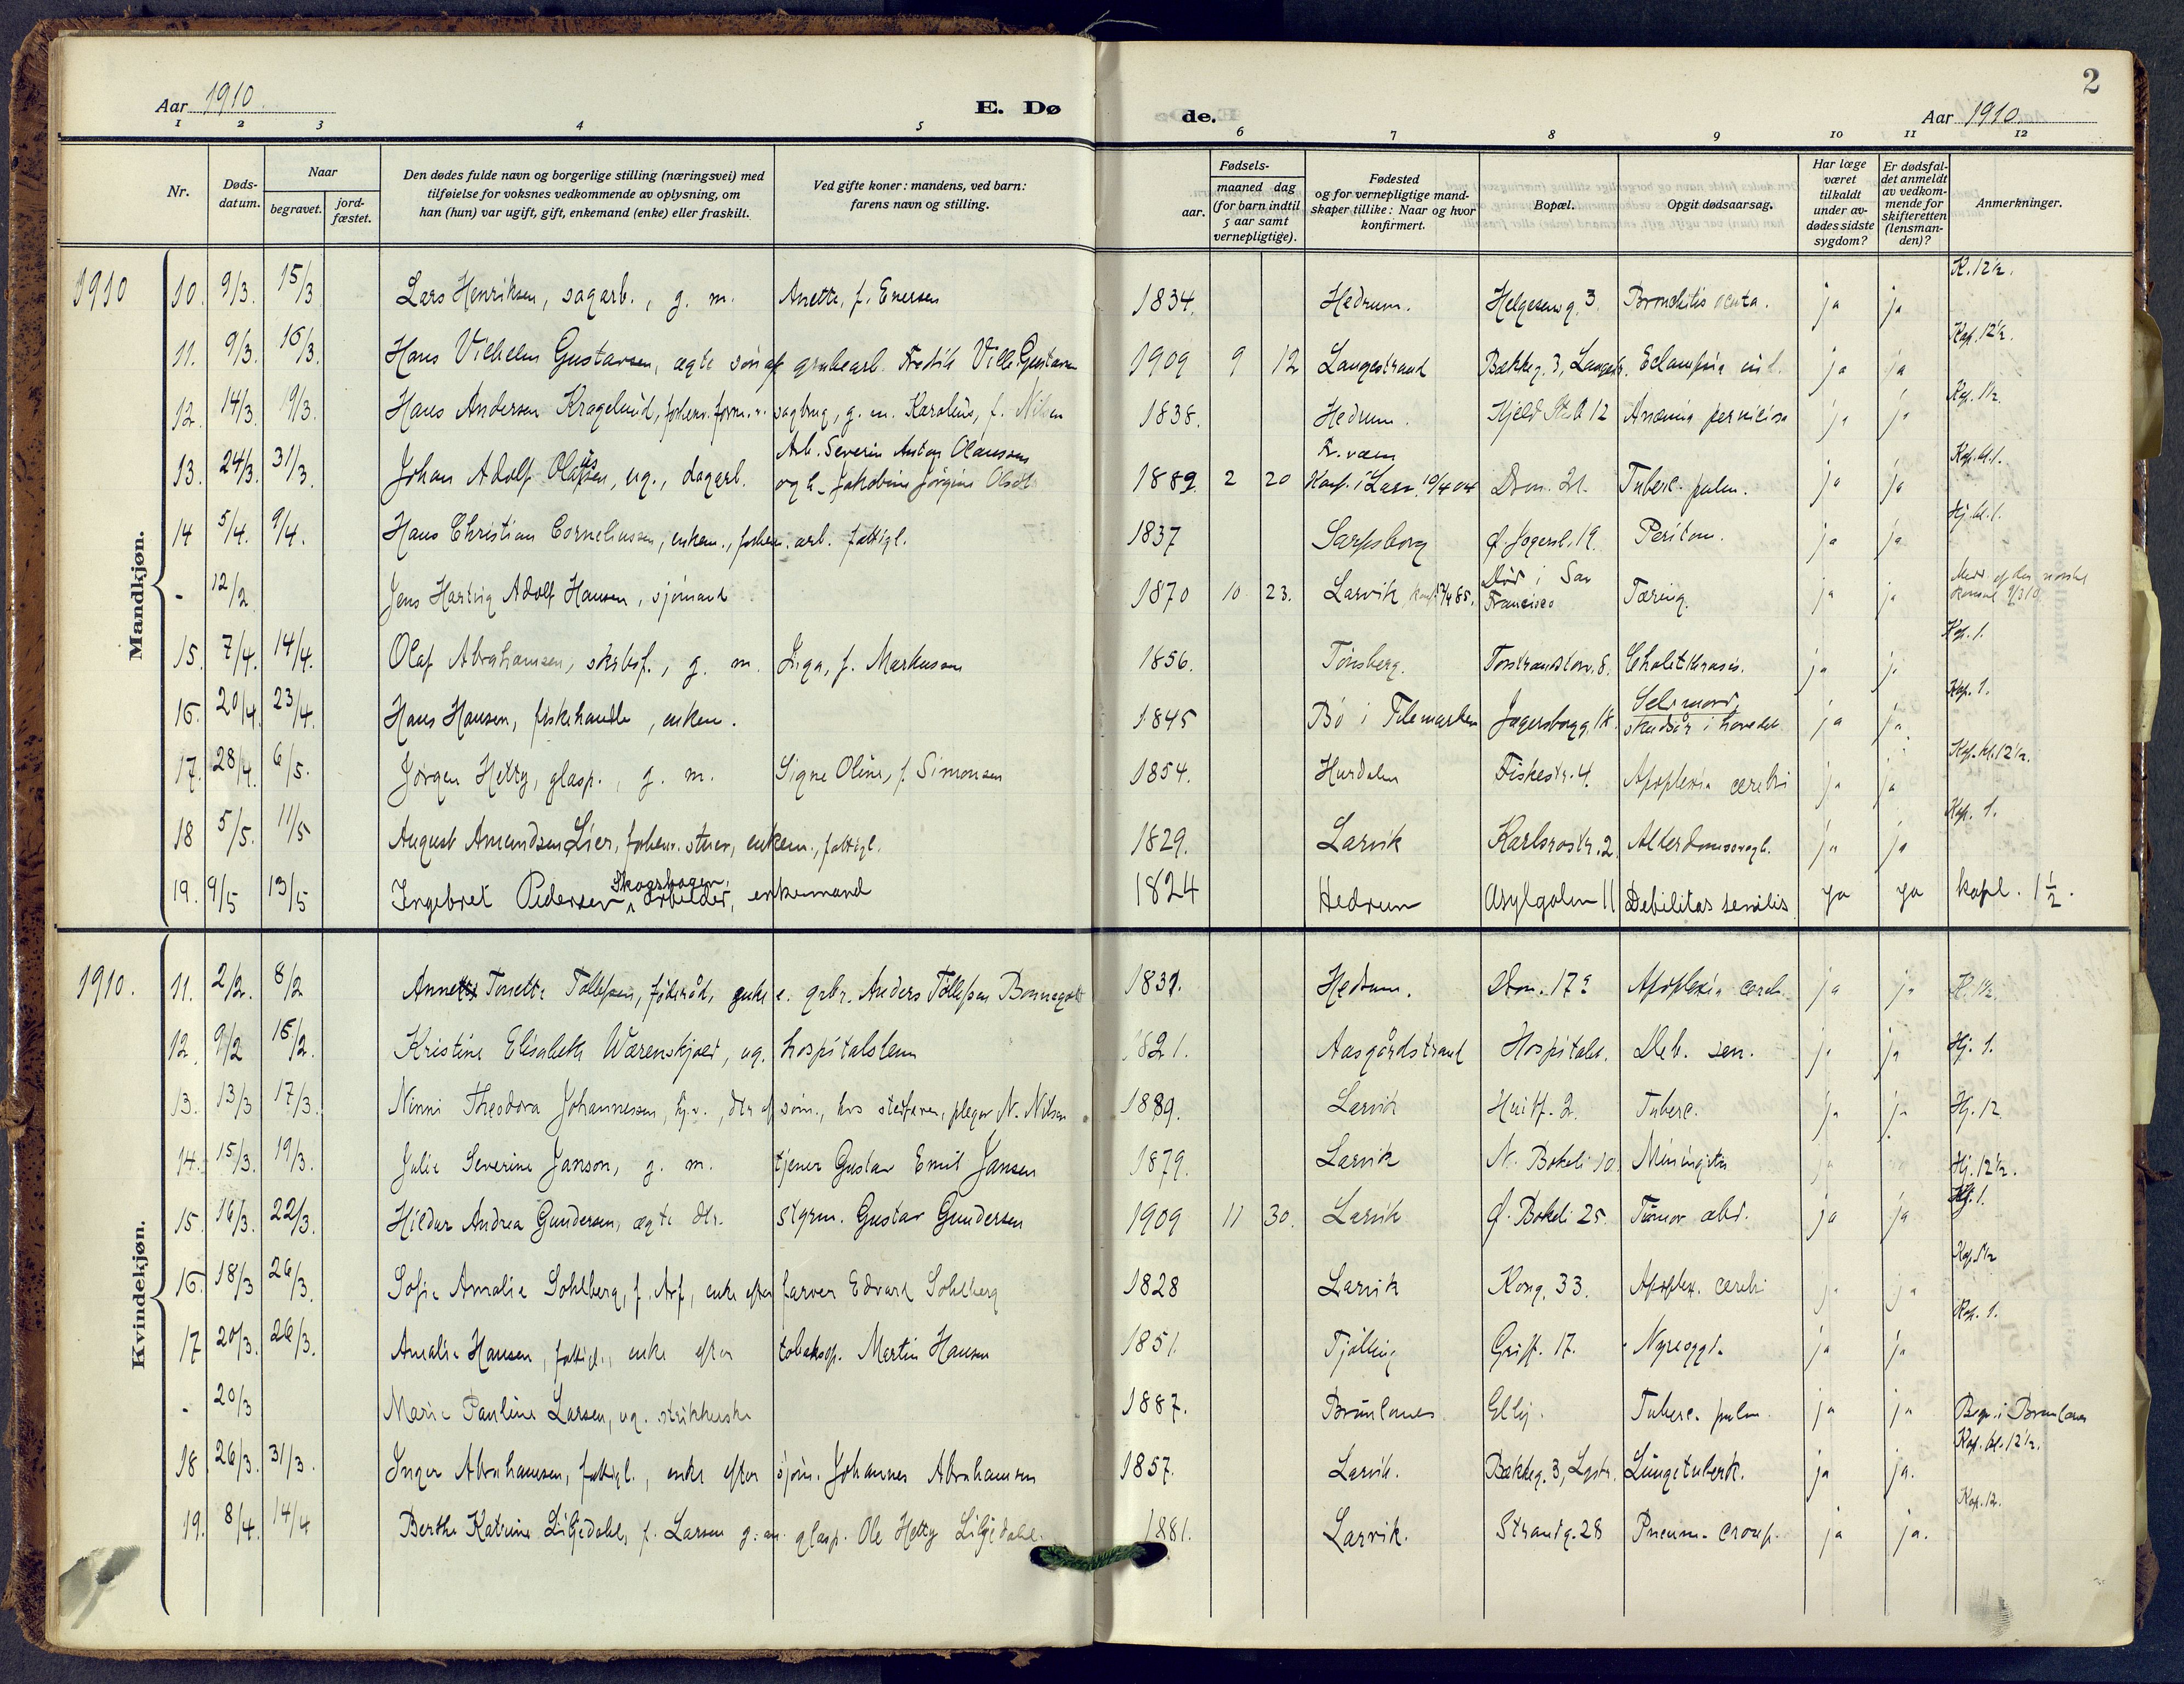 2
Aar 1910. E. Dø de. Aar 1910.
1 2 3 4 5 6 7 8 9 10 11 12
Nr. Døds-datum. Naar begravet. jord-fæstet. Den dødes fulde navn og borgerlige stilling (næringsvei) med tilføielse for voksnes vedkommende av oplysning, om han (hun) var ugift, gift, enkemand (enke) eller fraskilt. Ved gifte koner: mandens, ved barn: farens navn og stilling. Fødsels- aar. maaned dag (for barn indtil 5 aar samt vernepligtige). Fødested og for vernepligtige mand-skaper tillike: Naar og hvor konfirmert. Bopæl. Opgit dødsaarsag. Har læge været tilkaldt under av-dødes sidste sygdom? Er dødsfal-det anmeldt av vedkom-mende for skifteretten (lensman-den)? Anmerkninger.
Mandkjøn.
1910 10. 9/3. 15/3 Lars Henriksen, sagarb., g. m. Anette, f. Enersen 1834. Hedrum. Helgesensg. 3. Bronchitis acuta. ja ja K. 12½.
11. 9/3. 16/3. Hans Vilhelm Gustavsen, ægte søn af grubearb. Fredrik Ville Gustavsen 1909 9 12 Langestrand Bækkeg. 3, Langestr. Eclampsia inf. ja ja Kap. 12½.
12. 14/3. 19/3. Hans Andersen Kragelund, forhenv. form. v. sagbrug, g. m. Karoline, f. Nilsen 1838. Hedrum. Kjeld St. A 12 Anæmia perniciosa ja ja Kap. 1½.
13. 24/3. 31/3. Johan Adolf Olafsen, ug., dagarb. Arb. Severin Anton Olaussen og h. Jakobine Jørgine Olsdt. 1889. 2 20 Fr. værn Konf. i Larv. 10/4 04 Dron. 21. Tuberc. pulm. ja ja Kap. kl. 1.
14 5/4. 9/4. Hans Christian Corneliussen, enkem., forhenv. arb. fattigl. 1837 Sarpsborg Ø. Jegersb. 19. Periton. ja ja Hj. kl. 1.
- 12/2 Jens Hartvig Adolf Hansen, sjömand 1870 10 23. Larvik, konf. 12/4 85. Död i San Francisco Tæring. ja ja Medd. af den norske konsul 9/3 10
15. 7/4. 14/4. Olaf Abrahamsen, skibsf., g. m. Inga, f. Markussen 1856. Tönsberg. Torstrandstorv. 8. Cholelithiasis. ja ja Kap. 1.
16. 20/4. 23/4. Hans Hansen, fiskehandler, enkem. 1845 Bö i Telemarken Jegersborgg. 18. Selvmord, skudsår i hovedet. ja ja. Kap. 1.
17. 28/4. 6/5. Jörgen Hetty, glasp., g. m. Signe Oline, f. Simonsen 1854. Hurdalen Fiskestr. 4. Apoplexia cerebri ja ja Kap. kl. 12½.
18 5/5. 11/5 August Amundsen Lier, forhenv. stuer, enkem., fattigl. 1829. Larvik Karlsrostr. 2. Alderdomssvagh. ja ja Kap. 1.
19. 9/5 13/5 Ingebret Pedersen Skogshagen, arbeider, enkemand 1824 Hedrum Asylgaten 11 Debilitas senilis ja ja kapl. 1½.
Kvindekjøn.
1910. 11. 2/2. 8/2 Annette Tonette Tollefsen, föderåd, enke e. grbr. Anders Tollefsen Bommegot 1831. Hedrum. Dron. 17a Apoplexia cereb. ja ja K. 1½.
12. 9/2 15/2. Kristine Elisabeth Wærenskjold, ug. hospitalslem 1821. Aasgårdstrand Hospitalet. Deb. sen. ja ja Hj. 1.
13. 13/3 17/3. Ninni Theodora Johannessen, hj.v., dtr. af söm., hos stedfaren, pleger N. Nilsen 1889. Larvik Huitf. 2. Tuberc. ja ja Hj. 12
14. 15/3. 19/3. Julie Severine Janson, g. m. tjener Gustav Emil Jansen 1879. Larvik N. Bökeli 10 Miningitis ja Hj. 12½.
15. 16/3. 22/3. Hildur Andrea Gundersen, ægte dtr. styrm. Gustav Gundersen 1909 11 30. Larvik Ø. Bökeli 25. Tumor abd. ja ja Hj. 1.
16. 18/3 26/3. Sofie Amalie Sohlberg, f. Arf, enke efter farver Edvard Sohlberg 1828 Larvik Kong. 33. Apoplex. cerebri ja ja Kap. 1½
17 20/3. 26/3. Amalie Hansen, fattigl., enke efter tobaksp. Martin Hansen 1851. Tjölling Griff. 17. Nyresygd. ja ja Kap. 1.
- 20/3 Marie Pauline Larsen, ug. strikkerske 1887. Brunlanes Elly. Tuberc. pulm. ja ja Begr. i Brunlanes
18 26/3. 31/3. Inger Abrahamsen, fattigl., enke efter sjöm. Johannes Abrahamsen 1857. Larvik. Bækkeg. 3, Lgstr. Lungetuberk. ja ja. Kap. kl. 12½.
19. 8/4. 14/4 Berthe Katrine Liljedahl, f. Larsen g. m. glasp. Ole Hetty Liljedahl. 1881. Larvik. Strandg. 28 Pneum. croup. ja ja. Kap. 12.